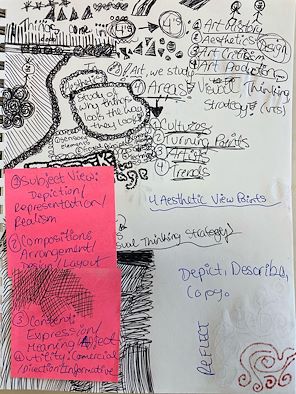 4's
① Art History
② Aesthetics/Design
③ Art Criticism
④ Art Production
In Art, we study
4 Areas
Visual Thinking
Strategy (VTS)
Study of
why things
look the way
they look
① Cultures
② Turning Points
③ Artists
④ Trends
① Subject View:
Depiction/
Representation/
Realism
② Compositions
Arrangement/
Design/Layout
③ Contents
Expression/
Meaning
④ Utility: Comercial/
Direction/Informative
4 Aesthetic View Points
sual Thinking Strategy
Depict, Describe,
Copy.
REFLECT